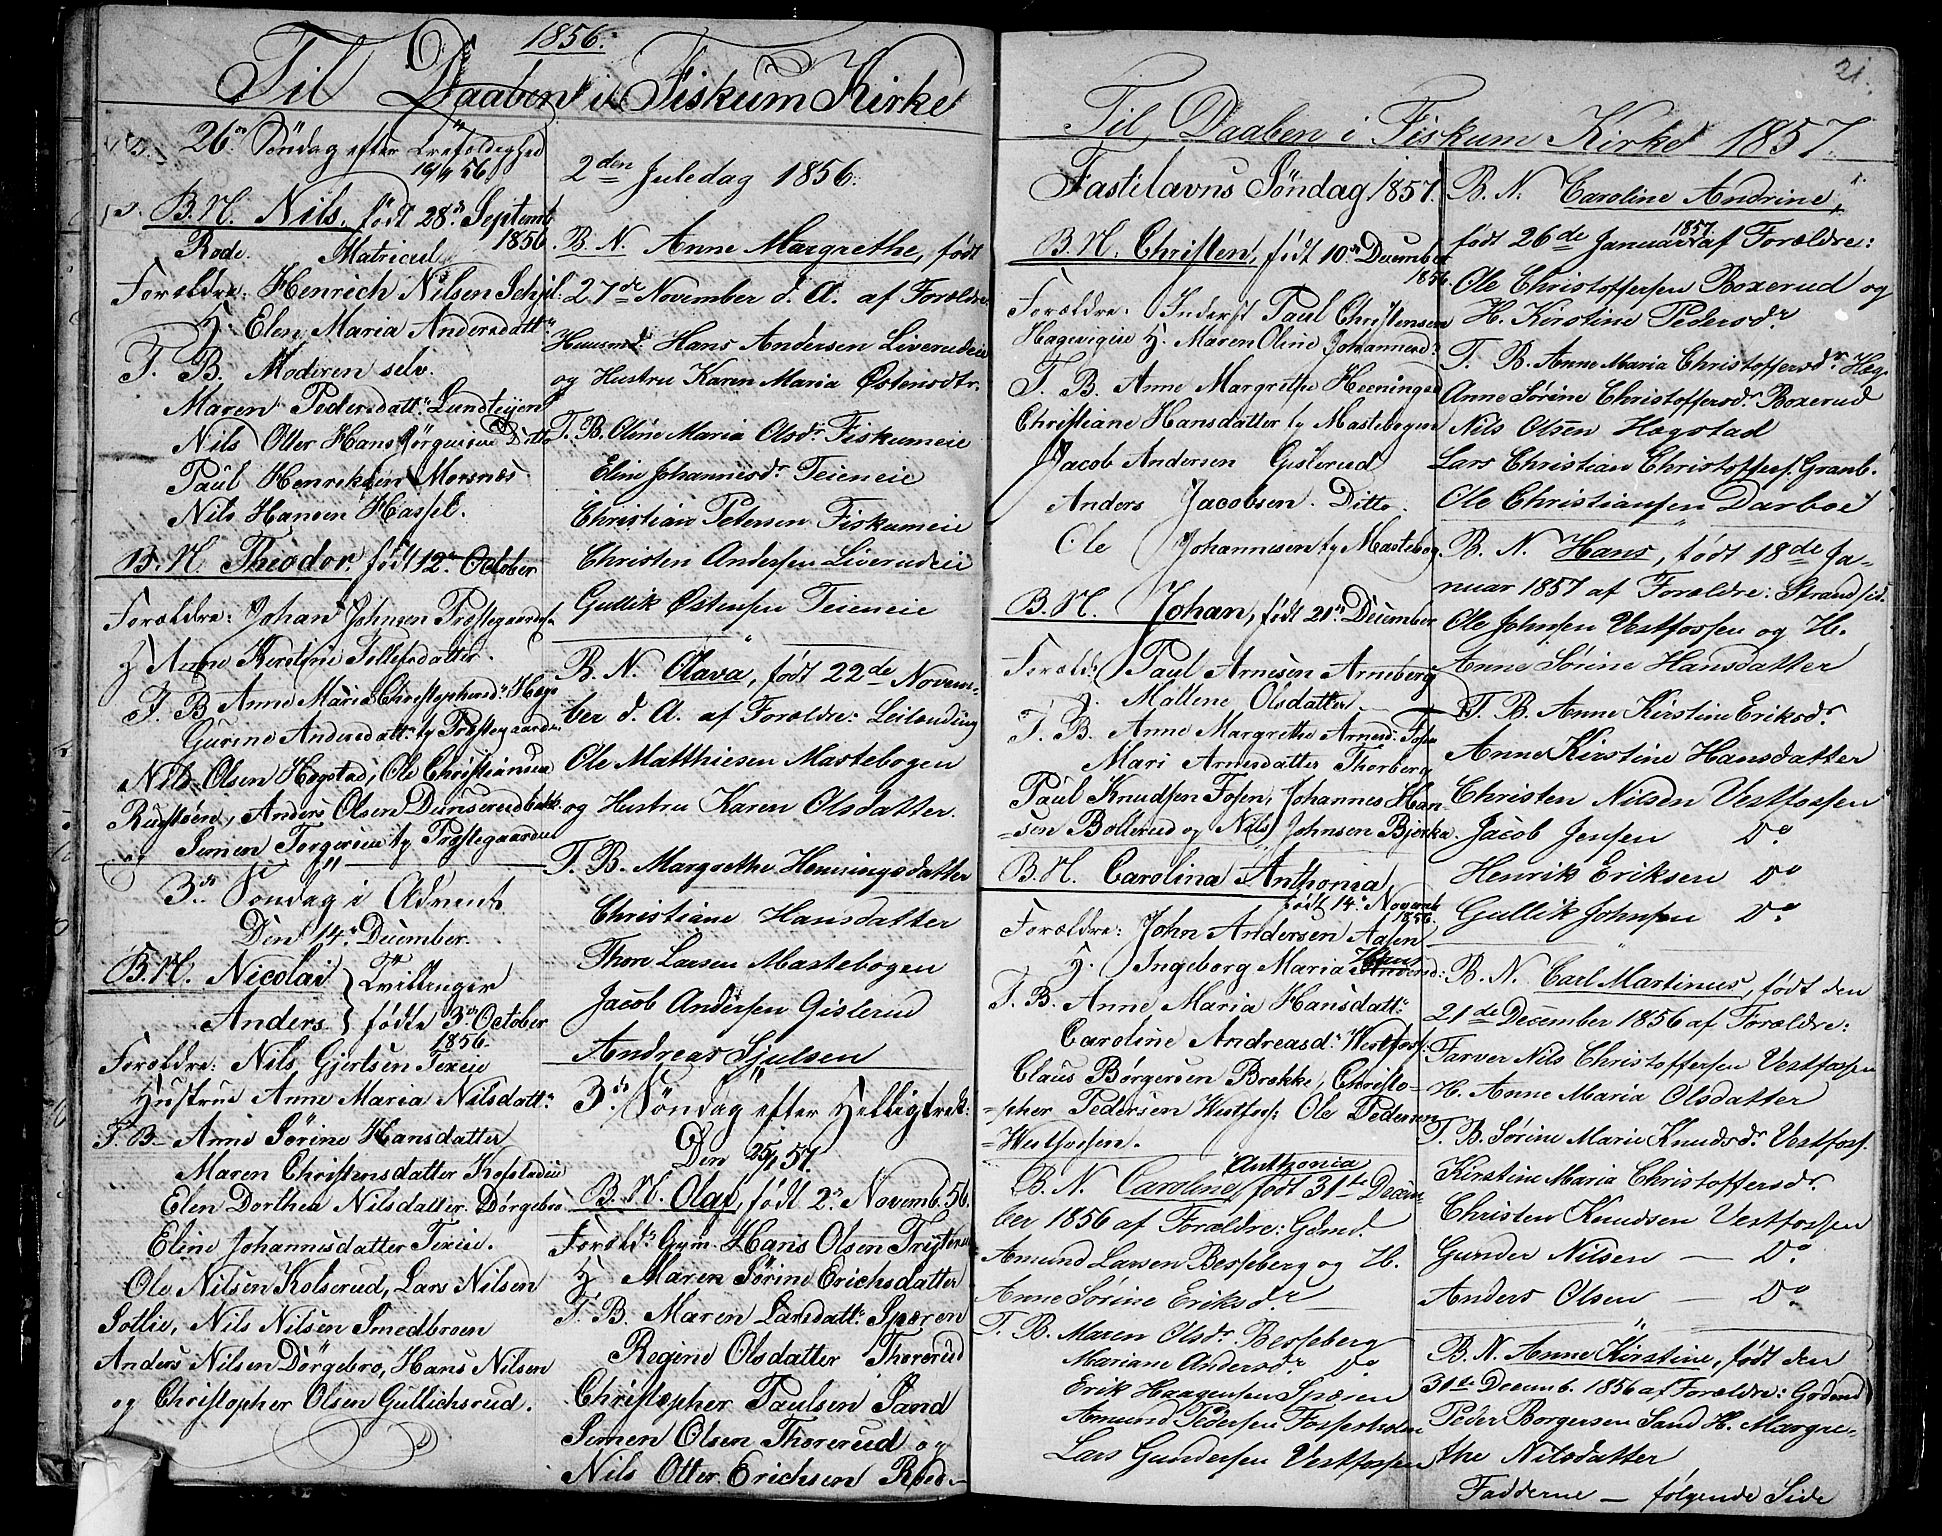 1856.
Til Daaben i Fiskum Kirke
26de Söndag efter Trefoldighed
16/11 56
B. N. Nils, født 28de Septemb
1856
Forældre: Henrich Nilsen
H. Elen Maria Andersdattr
T. B. Moderen selv.
Maren Pedersdattr Lundteijen
Nils Otter Hans Jørgensen Ditto
Paul Henriksen Morsnæs
Nils Hansen Hassel.
B. N. Theodor, født 12te October
Forældre: Johan Johnsen Præstegaards
H. Anne Kerstine Tollefsdatter.
T. B. Anne Maria Christophersdr Hægs
Gurine Andersdattr Præstegaarden
Nils Olsen Hægstad, Ole Christiansen
Rustøen, Anders Olsen Dunserudbakk
og Simen Torgersen Præstegaarden
3die Söndag i Advent
Den 14de December.
B. N. Nicolai } Tvillinger
Anders } fødte 3die October
1856.
Forældre: Nils Gjertsen Teieie
Hustrue Anne Maria Nilsdattr
T. B. Anne Sørine Hansdatter
Maren Christensdatter Kopstadeie
Elen Dorthea Nilsdatter Dørgebro
Eline Johannisdatter Teieie.
Ole Nilsen Kolserud, Lars Nilsen
Sotlie, Nils Nilsen Smedbroen
Anders Nilsen Dørgebro, Hans Nilsen
og Christopher Olsen Gullichsrud.
2den Juledag 1856.
B. N. Anne Margrethe, født
27de November d. A. af Forældre
Huusmd Hans Andersen Liverudeie
og Hustru Karen Maria Østensdtr.
T. B. Oline Maria Olsdr Fiskumeie
Eline Johannesdr Teieneie
Christian Petersen Fiskumeie
Christen Andersen Liverudeie
Gullik Østensen Teieneie
B. N. Olava, født 22de Novem-
ber d. A. af Forældre: Leilending
Ole Matthiesen Mastebogen
og Hustru Karen Olsdatter.
T. B. Margrethe Henningsdatter
Christiane Hansdatter
Thore Larsen Mastebogen
Jacob Andersen Gislerud
Andreas Sjulsen
3die Söndag efter Helligtrek:
Den 25/1 57.
B. N. Olaf, født 2den Novemb. 56.
Foreld: Gaardm Hans Olsen Trÿterud
H. Maren Sørine Erichsdatter
T. B. Maren Larsdattr Spæren
Regine Olsdatter Thorerud
Christopher Paulsen Sand
Simen Olsen Thorerud og
Nils Otter Erichsen Roed
21.
Til Daaben i Fiskum Kirke 1857.
Fastelavns Söndag 1857.
B. N. Christen, født 10de December
1856
Forældre: Inderst Paul Christensen
Hagevigeie H. Maren Oline Johannesdr
T. B. Anne Margrethe Henningsd
Christiane Hansdatter Mastebogen
Jacob Andersen Gislerud
Anders Jacobsen Ditto.
Ole Johannesen Mastebog.
B. N. Johan, født 21de December
Foreld: Paul Arnesen Arneberg
H. Mallene Olsdatter
T. B. Anne Margrethe Arnesd: Fosen
Mari Arnesdatter Thorberg
Paul Knudsen Fosen, Johannes Han-
-sen Bollerud og Nils Johnsen Bjerke.
B. N. Carolina Anthonia,
født 14de Novemb
1856.
Forældre: John Andersen Aasen
H. Ingeborg Maria Hans
T. B. Anne Maria Hansdattr
Caroline Andreasd: Westfoss:
Claus Börgersen Brække, Christo-
-pher Pedersen Westfoss: Ole Pedersen
Westfossen.
Anthonia
B. N. Caroline, født 31te Decem-
ber 1856 af Forældre: Gdmd.
Amund Larsen Besseberg og H.
Anne Sørine Eriksdr
T. B. Maren Olsdr Besseberg
Mariane Andersdr Do
Erik Haagensen Spæren
Amund Pedersen Fossesholm
Lars Gundersen Vestfossen
B. N. Caroline Andrine,
født 26de Januar 1857 af Forældre:
Ole Christoffersen Boxerud og
H. Kirstine Pedersdr
T. B. Anne Maria Christoffersdr Hægs
Anne Sørine Christoffersdr Boxerud
Nils Olsen Hægstad
Lars Christian Christoffers. Granb.
Ole Christiansen Darboe
B. N. Hans, født 18de Ja-
nuar 1857 af Forældre: Strandsid.
Ole Johnsen Vestfossen og H.
Anne Sørine Hansdatter
T. B. Anne Kirstine Eriksdr
Anne Kirstine Hansdatter
Christen Nilsen Vestfossen
Jacob Jensen Do
Henrik Eriksen Do
Gullik Johnsen Do
B. N. Carl Martinus, født den
21de December 1856 af Forældre:
Farver Nils Christoffersen Vestfossen
H. Anne Maria Olsdatter
T. B. Sørine Marie Knudsdr Vestfoss.
Kirstine Maria Christoffersdr
Christen Knudsen Vestfossen
Gunder Nilsen — Do
Anders Olsen — Do
B. N. Anne Kirstine, født den
31te Decemb. 1856 af Forældre: Gdmd
Peder Borgersen Sand H. Margre-
the Nilsdatter
Fadderne — følgende Side